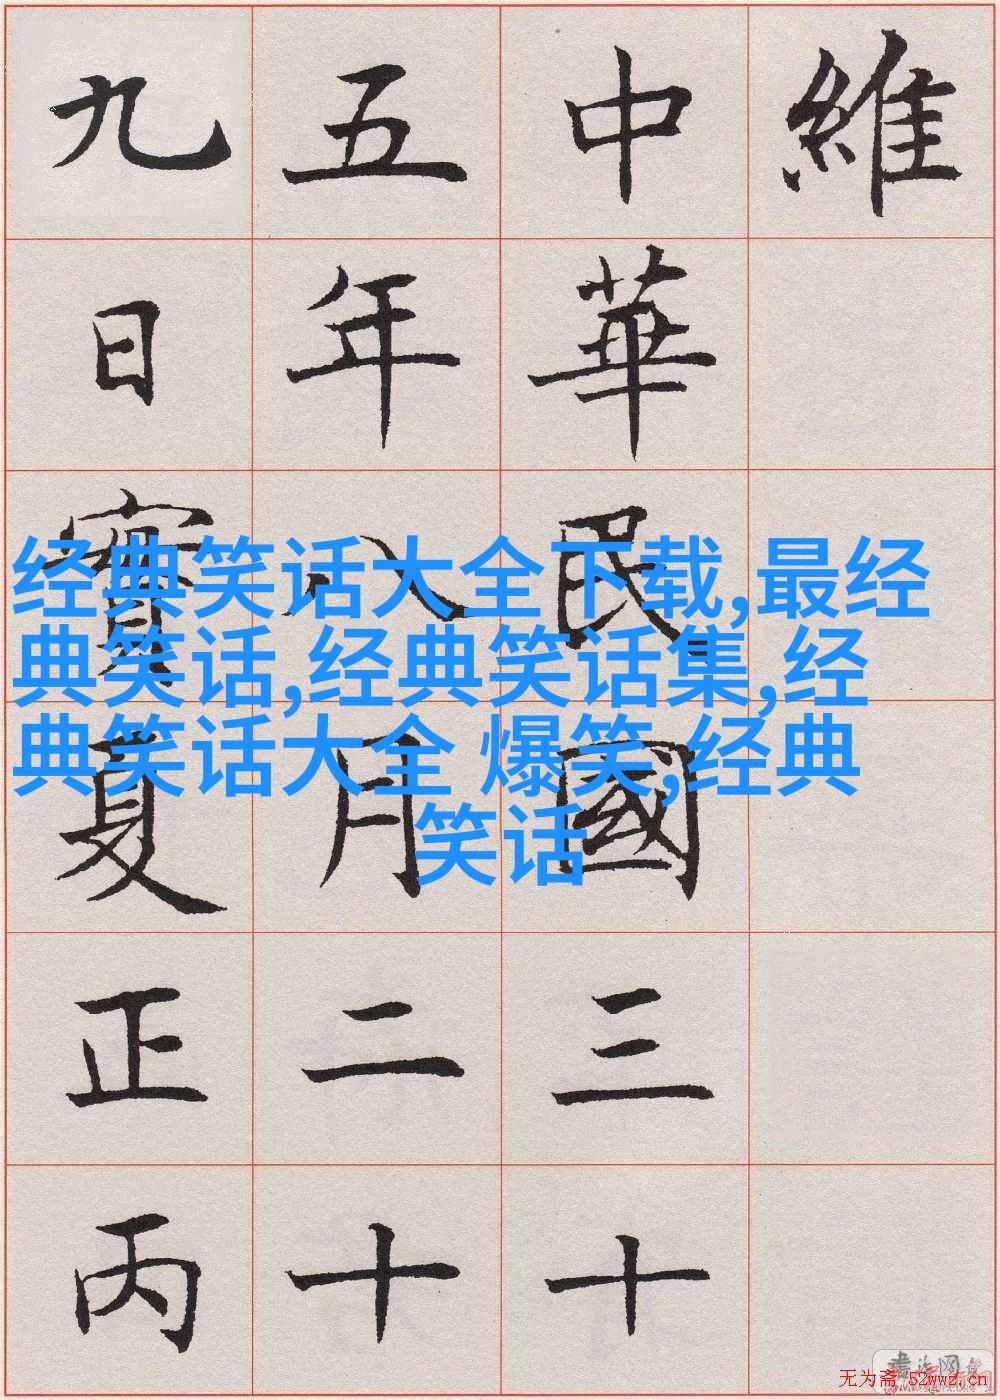 維
中華民國三十
五年八月二十
九日實夏正丙
经典笑话大全下载,最经
典笑话,经典笑话集,经
典笑话大全 爆笑,经典
笑话
无为斋 52wwz.cn